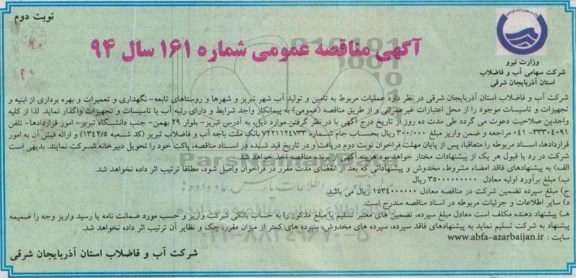 نوبت دوم
آگهی مناقصه عمومی شماره ۱۶۱ سال ۹۴
وزارت نیرو
شرکت سهامی آب و فاضلاب
استان آذربایجان شرقی
شرکت آب و فاضلاب استان آذربایجان شرقی در نظر دارد عملیات مربوط به تامین و تولید آب شهر تبریز و شهرها و روستاهای تابعه- نگهداری و تعمیرات و بهره برداری از ابنیه و
تجهیزات و تاسیسات موجود را از محل اعتبارات غیر عمرانی و از طریق مناقصه (عمومی) به پیمانکار واجد شرایط و دارای رتبه آب یا تاسیسات و تجهیزات واگذار نماید. لذا از کلیه
واجدین صلاحیت دعوت می گردد طی مدت ده روز از تاریخ درج آگهی با در دست گرفتن موارد ذیل، به آدرس تبریز- بلوار ۲۹ بهمن- جنب دانشگاه تبریز- امور قراردادها- تلفن
۳۳۳۰۴۰۹۱-۰۴۱ مراجعه و ضمن واریز مبلغ ۳۰۰/۰۰۰ ریال بحساب جام شماره ۷۲۲۱۱۲۴۷۳۳ بانک ملت باجه آب و فاضلاب تبریز (کد شعبه ۱۳۴۲/۵) و ارائه فیش آن به امور
قراردادها، اسناد مربوطه را متعاقبا، پس از پایان مهلت فراخوان نوبت دوم دریافت و در تاریخ قید شده در اسناد مناقصه، پاکت خود را تحویل دبیرخانه شرکت نمایند. بدیهی است
شرکت در رد یا قبول هر یک از پیشنهادات مختار خواهد بود و هزینه آگهی از برنده مناقصه اخذ خواهد شد.
الف) به پیشنهادهای فاقد امضاء مشروط، مخدوش و پیشنهاداتی که بعد از انقضای مدت مقرر در فراخوان واصل شود، مطلقا ترتیب اثر داده نخواهد شد.
ب) مبلغ برآورد اولیه معادل ۳۵۰۰۰۰۰۰۰۰۰ ریال
ج) مبلغ سپرده تضمین شرکت در مناقصه معادل ۱۵۳۴۰۰۰۰۰۰ ریال می باشد.
د) سایر اطلاعات و جزئیات مربوطه در اسناد مناقصه مندرج است.
هـ) پیشنهاد دهنده مکلف است معادل مبلغ سپرده، تضمین های معتبر تسلیم یا مبلغ مذکور را به حساب بانکی شرکت واریز و حسب مورد ضمانت نامه یا رسید واریز وجه را ضمیمه
پیشنهاد به شرکت تسلیم نماید به پیشنهادهای فاقد سپرده، سپرده های مخدوش، سپرده های کمتر از میزان مقرر، چک و نظایر آن ترتیب اثر داده نخواهد شد.
سایت: www.abfa-azarbaijan.ir
شرکت آب و فاضلاب استان آذربایجان شرقی